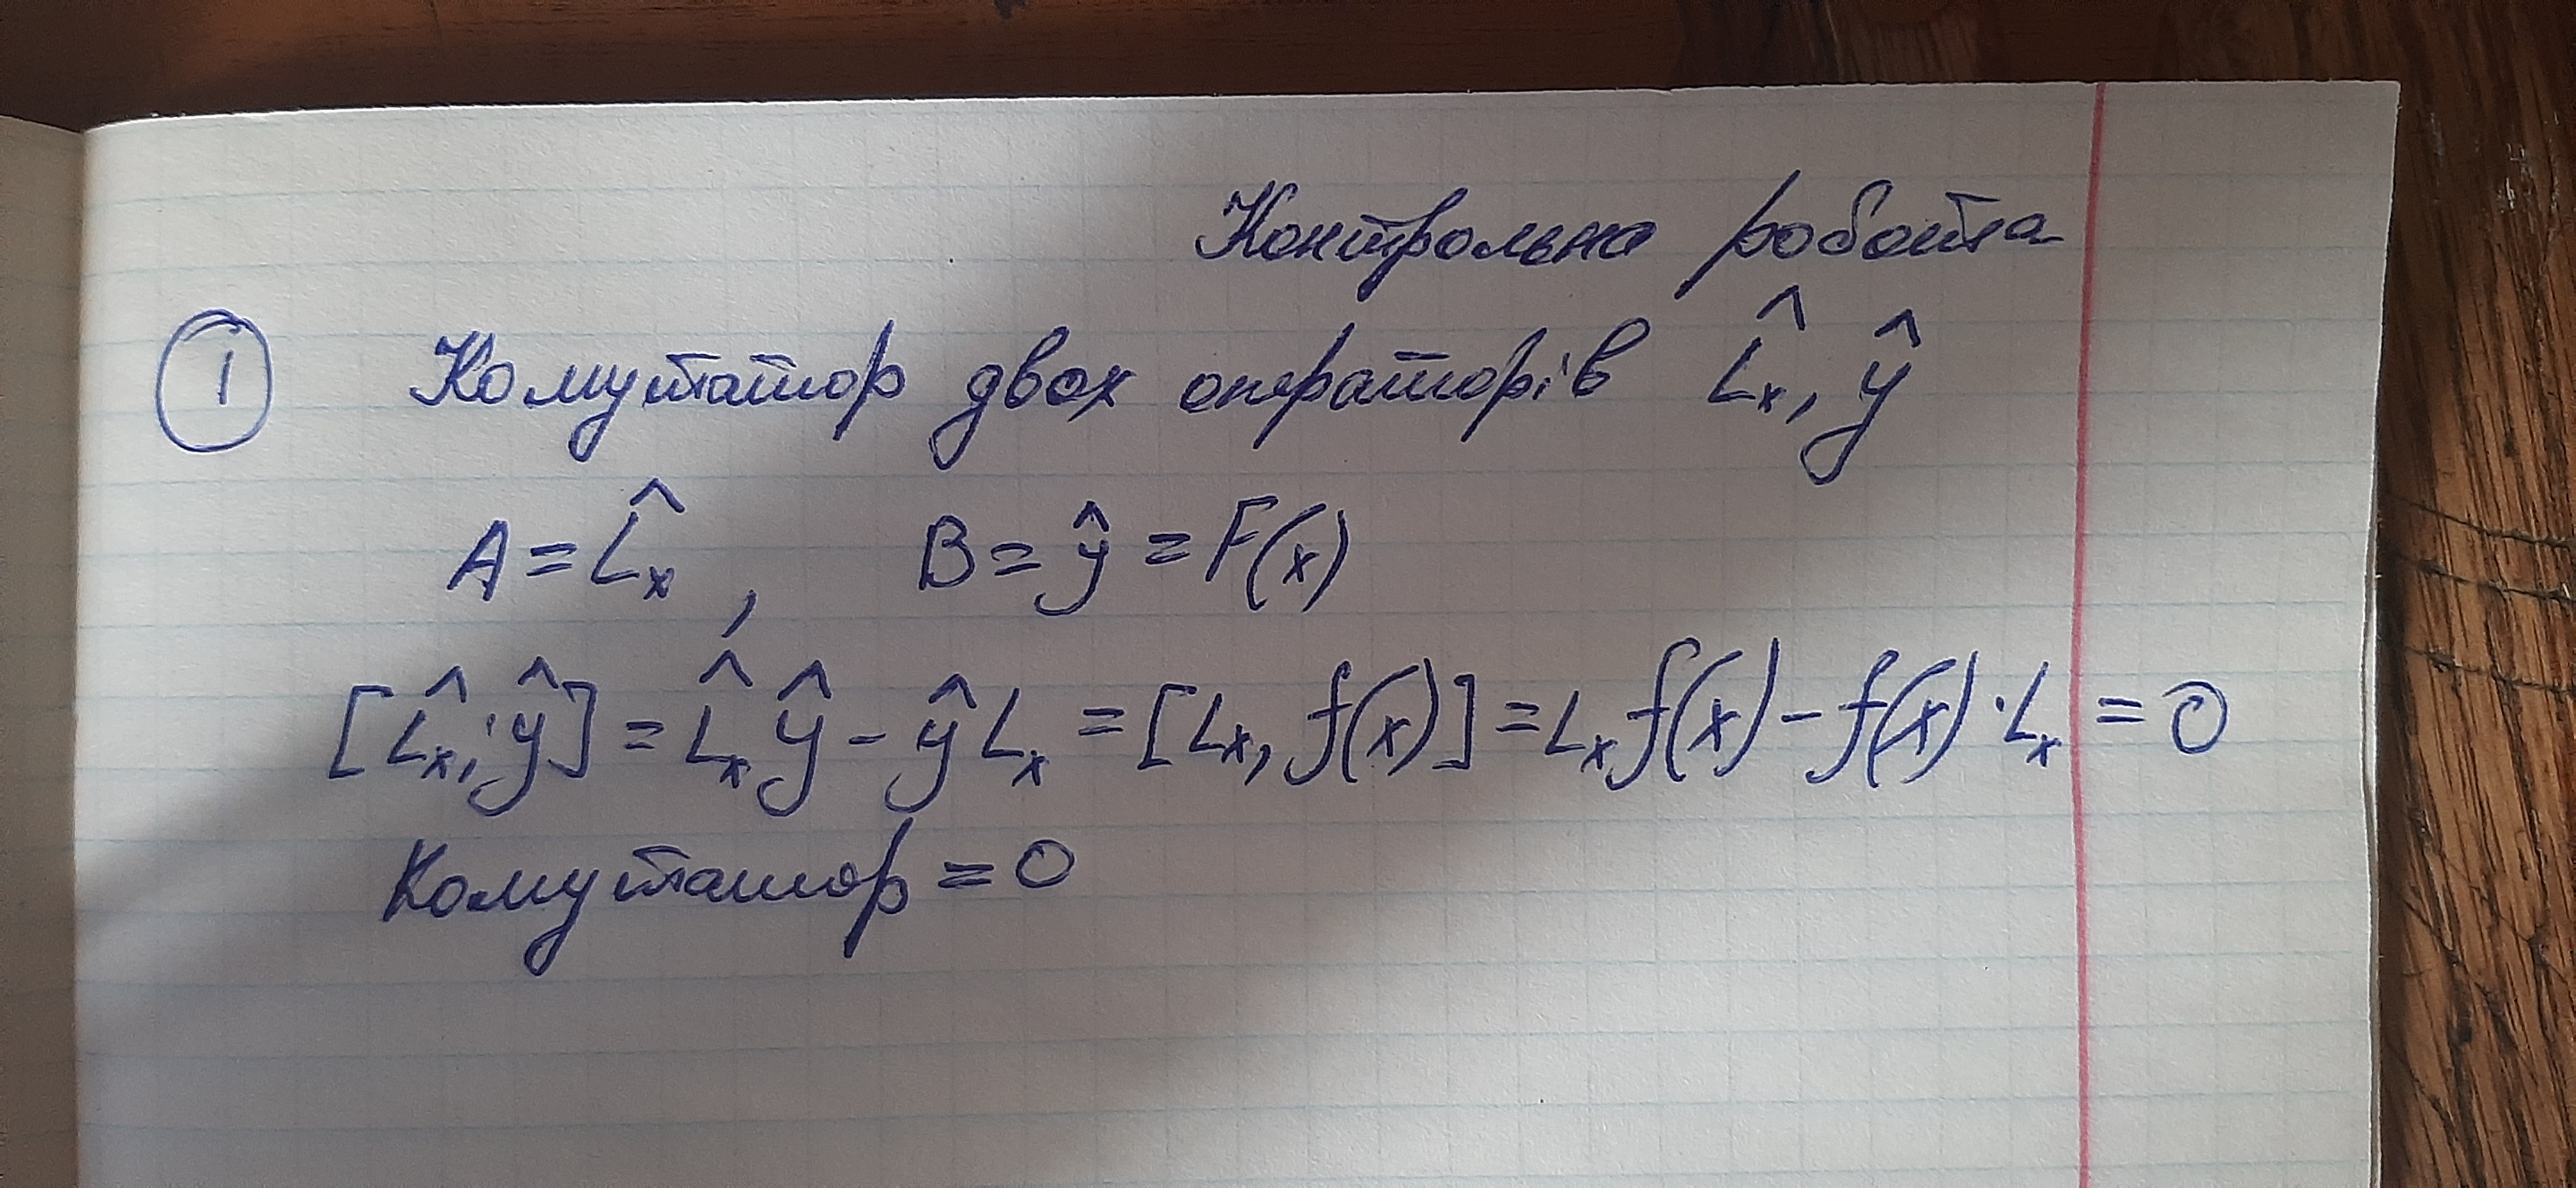 Контрольна робота
① Комутатор двох операторів L̂ₓ, ŷ
A = L̂ₓ, B = ŷ = F(x)
[L̂ₓ, ŷ] = L̂ₓŷ - ŷL̂ₓ = [Lₓ, f(x)] = Lₓf(x) - f(x)·Lₓ = 0
Комутатор = 0